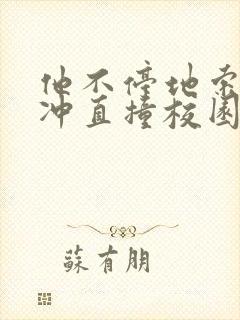 他不停地
冲直撞校園
蘇有朋